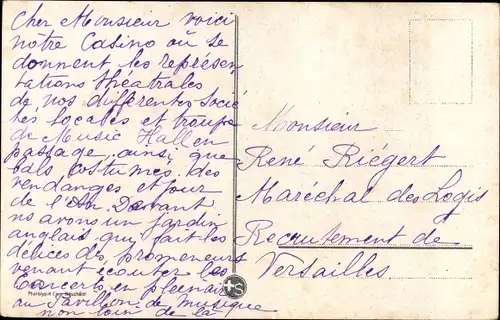 Cher Monsieur voici
notre Casino où se
donnent les représen
tations théatrales
de nos différentes socié
tés locales et troupe
de Music Hall en
passage, ainsi que
bals, costumés des
vendanges et jour
de l'An Devant
ns avons un jardin
anglais qui fait les
délices des promeneurs
venant écouter les
Concerts en plein air
au Pavillon de musique
non loin de là
Monsieur
René Riégert
Maréchal des Logis
Recrutement de
Versailles
TS